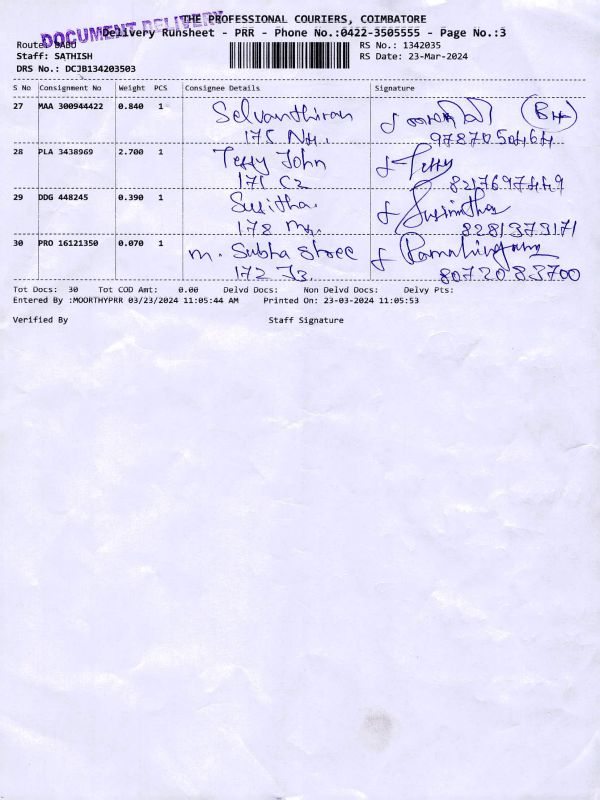 THE PROFESSIONAL COURIERS, COIMBATORE
DOCUMENT DELIVERY
Delivery Runsheet - PRR - Phone No.:0422-3505555 - Page No.:3
Route: BABU RS No.: 1342035
Staff: SATHISH RS Date: 23-Mar-2024
DRS No.: DCJB134203503
S No Consignment No Weight PCS Consignee Details Signature
27 MAA 300944422 0.840 1 Selvanthiran
175 9787050464
28 PLA 3438969 2.700 1 Terry John Terry
171 C2 8217697449
29 DDG 448245 0.390 1 Susitha
178 8281373171
30 PRO 16121350 0.070 1 m. Subha Shree
172 J3. 8072083700
Tot Docs: 30 Tot COD Amt: 0.00 Delvd Docs: Non Delvd Docs: Delvy Pts:
Entered By :MOORTHYPRR 03/23/2024 11:05:44 AM Printed On: 23-03-2024 11:05:53
Verified By Staff Signature